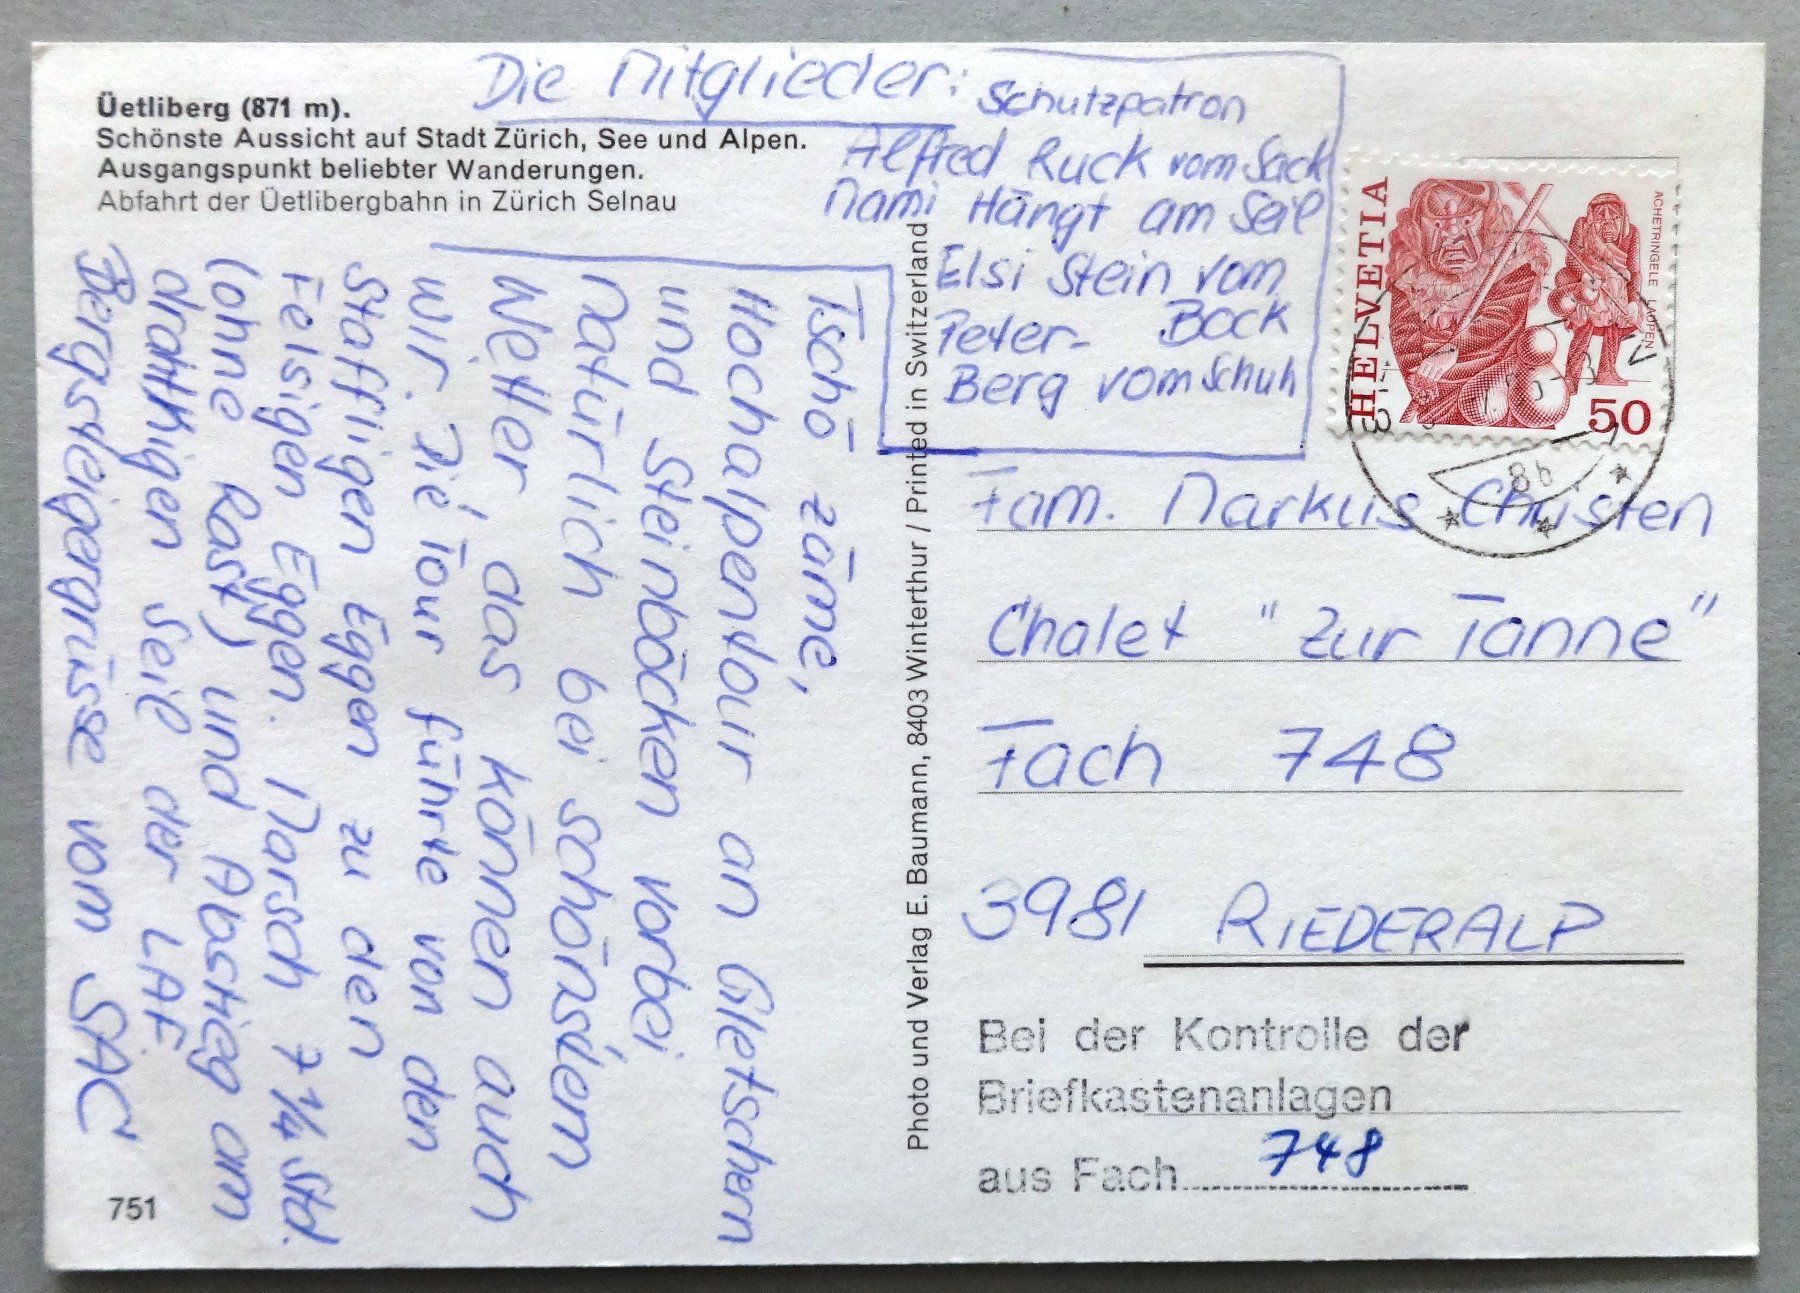 Üetliberg (871 m).
Schönste Aussicht auf Stadt Zürich, See und Alpen.
Ausgangspunkt beliebter Wanderungen.
Abfahrt der Üetlibergbahn in Zürich Selnau
Die Mitglieder:
Schutzpatron
Alfred Ruck vom Sack
Mami Hängt am Seil
Elsi Stein vom
Bock
Peter-
Berg vom Schuh
Tschö zäme,
Hochalpentour an Gletschern
und Steinböcken vorbei
Natürlich bei schönstem
Wetter, das können auch
wir. Die Tour führte von den
Staffligen Eggen zu den
Felsigen Eggen. Marsch 7 1/4 Std.
(ohne Rast) und Abstieg am
drahtigen Seil der LAF
Bergsteigergrüsse vom SAC
751
Photo und Verlag E. Baumann, 8403 Winterthur / Printed in Switzerland
HELVETIA
ACHETRINGELE LAUPEN
50
Fam. Markus Christen
Chalet "Zur Tanne"
Fach 748
3981 RIEDERALP
Bei der Kontrolle der
Briefkastenanlagen
aus Fach 748